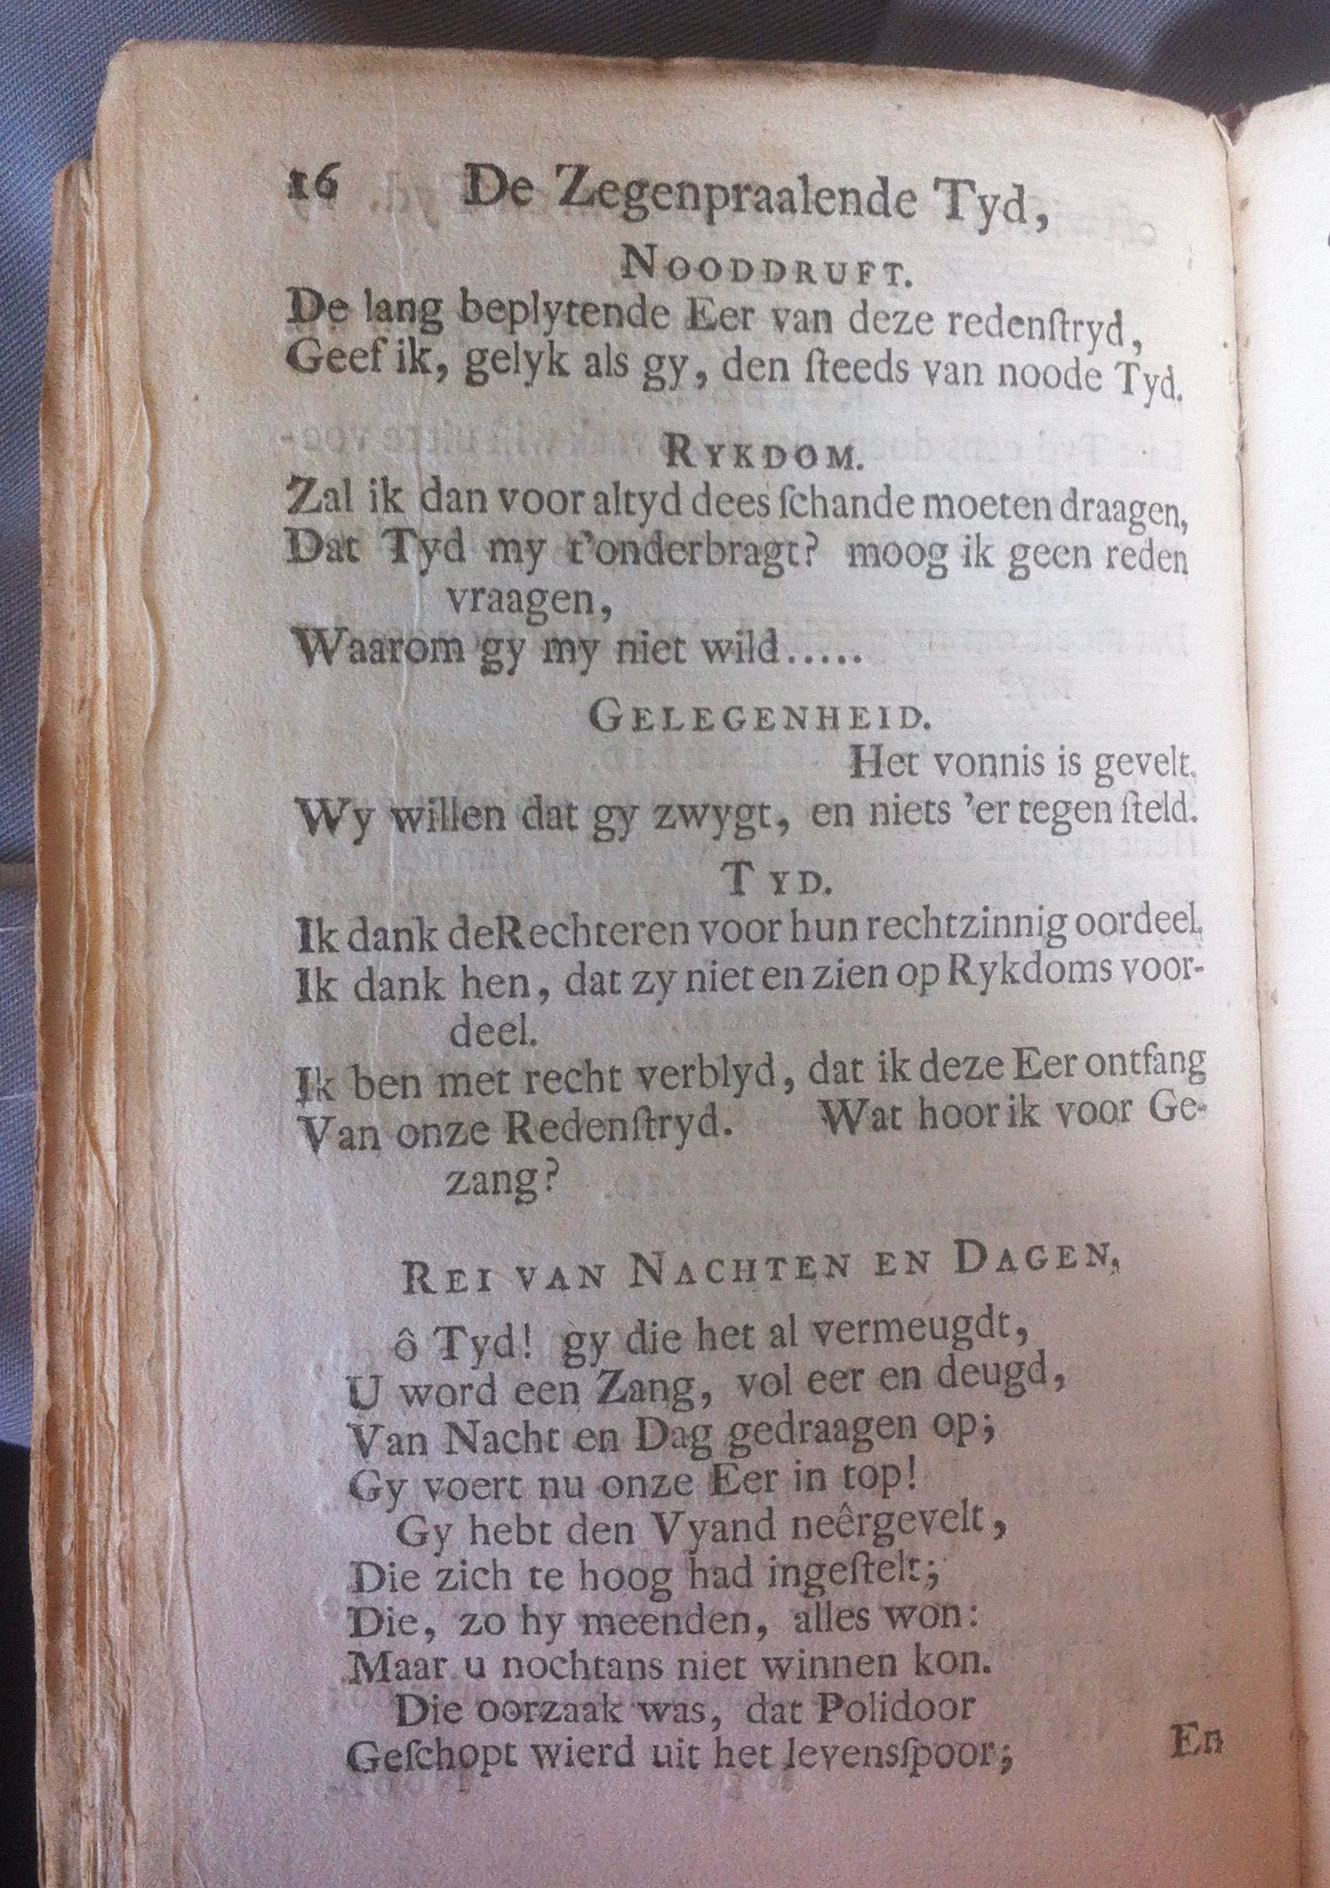 16 De Zegenpraalende Tyd,
NOODDRUFT.
De lang beplytende Eer van deze redenſtryd,
Geef ik, gelyk als gy, den ſteeds van noode Tyd.
RYKDOM.
Zal ik dan voor altyd dees ſchande moeten draagen,
Dat Tyd my t'onderbragt? moog ik geen reden
vraagen,
Waarom gy my niet wild.....
GELEGENHEID.
Het vonnis is gevelt.
Wy willen dat gy zwygt, en niets 'er tegen ſteld.
TYD.
Ik dank deRechteren voor hun rechtzinnig oordeel.
Ik dank hen, dat zy niet en zien op Rykdoms voor-
deel.
Ik ben met recht verblyd, dat ik deze Eer ontfang
Van onze Redenſtryd. Wat hoor ik voor Ge-
zang?
REI VAN NACHTEN EN DAGEN,
ô Tyd! gy die het al vermeugdt,
U word een Zang, vol eer en deugd,
Van Nacht en Dag gedraagen op;
Gy voert nu onze Eer in top!
Gy hebt den Vyand neêrgevelt,
Die zich te hoog had ingeſtelt;
Die, zo hy meenden, alles won:
Maar u nochtans niet winnen kon.
Die oorzaak was, dat Polidoor
Geſchopt wierd uit het levensſpoor;
En